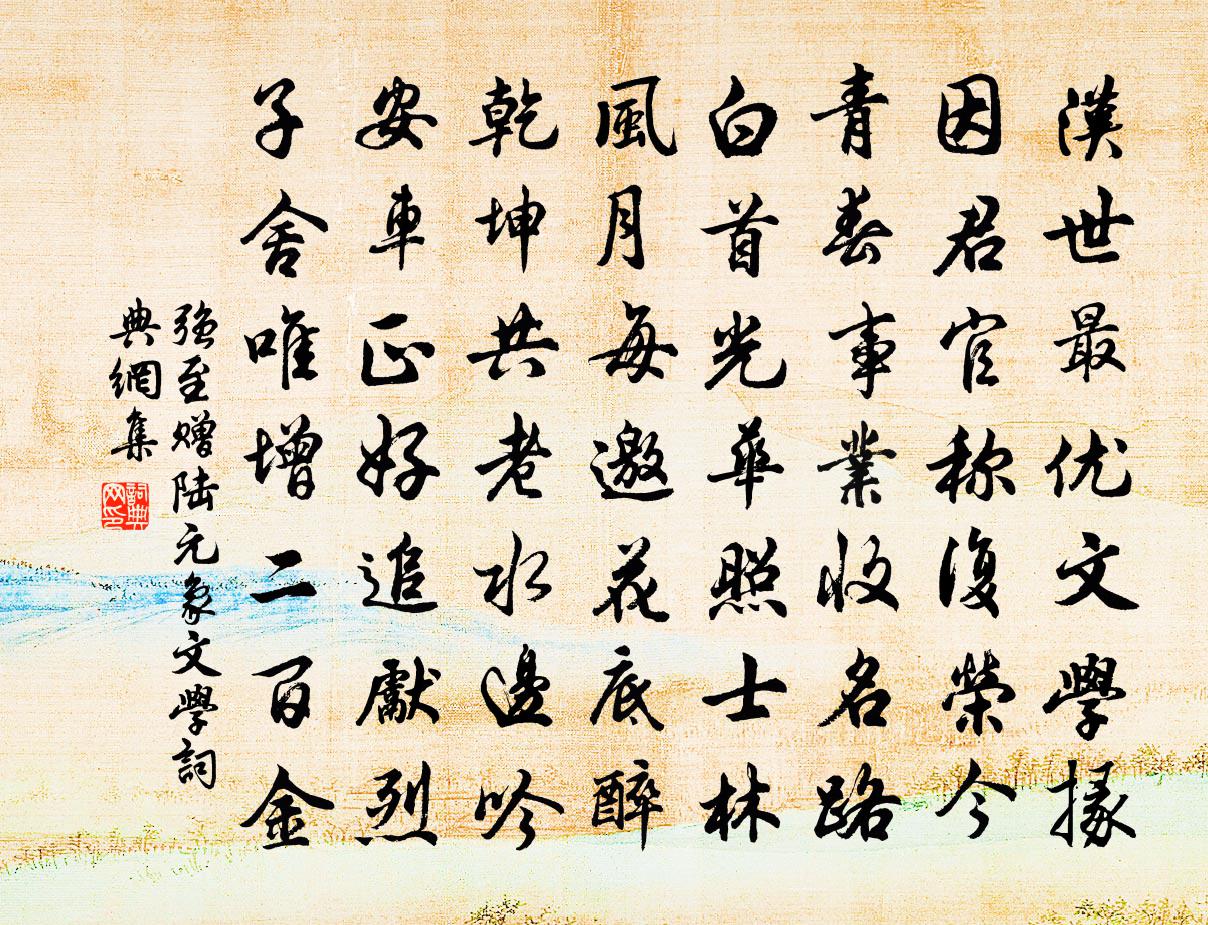 漢世最优文學掾
因君官称復榮今
青春事業收名路
白首光華照士林
風月每邀花底醉
乾坤共老水邊吟
安車正好追獻烈
子舍唯增二百金
强至贈陆元象文學詞
典網集
詞典
网印